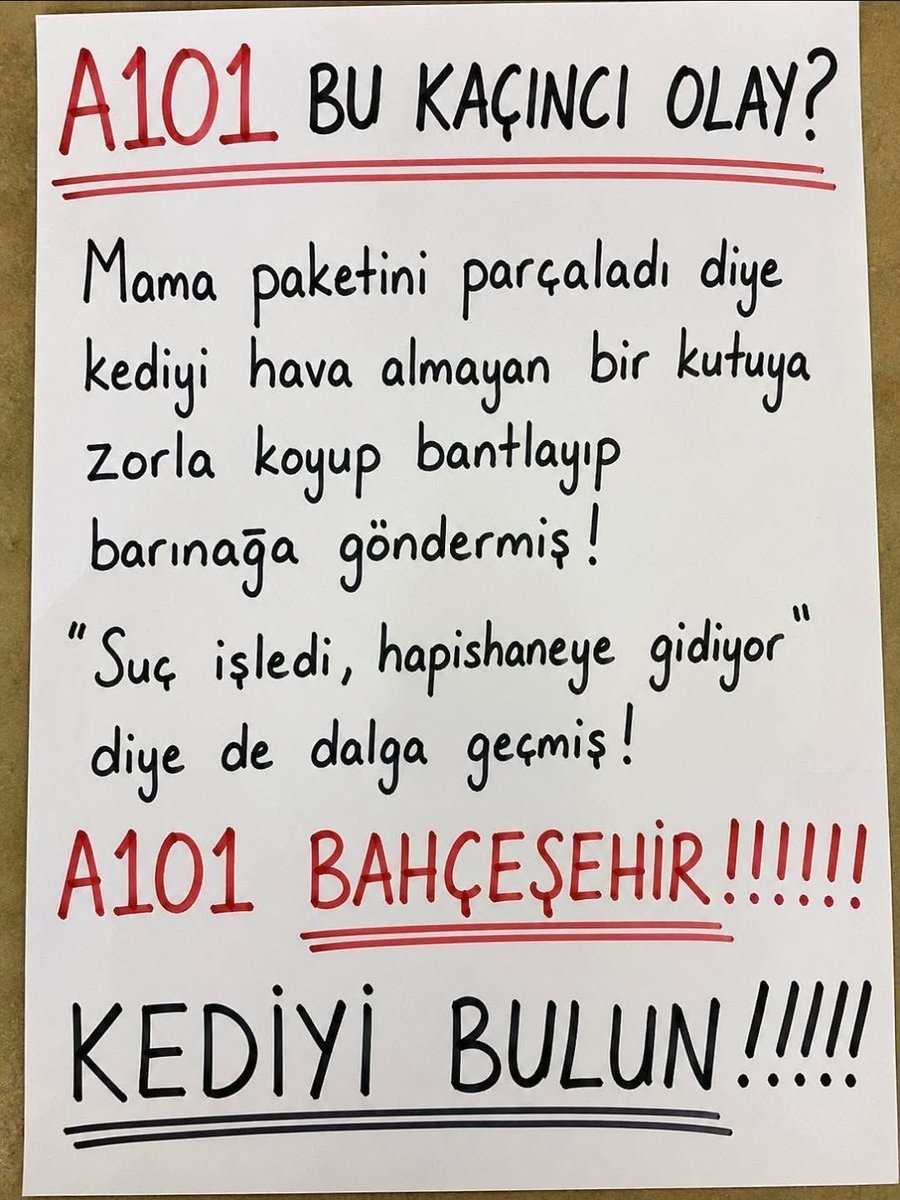 A101 BU KAÇINCI OLAY?
Mama paketini parçaladı diye
kediyi hava almayan bir kutuya
zorla koyup bantlayıp
barınağa göndermiş!
"Suç işledi, hapishaneye gidiyor"
diye de dalga geçmiş!
A101 BAHÇEŞEHİR!!!!!!
KEDİYİ BULUN!!!!!